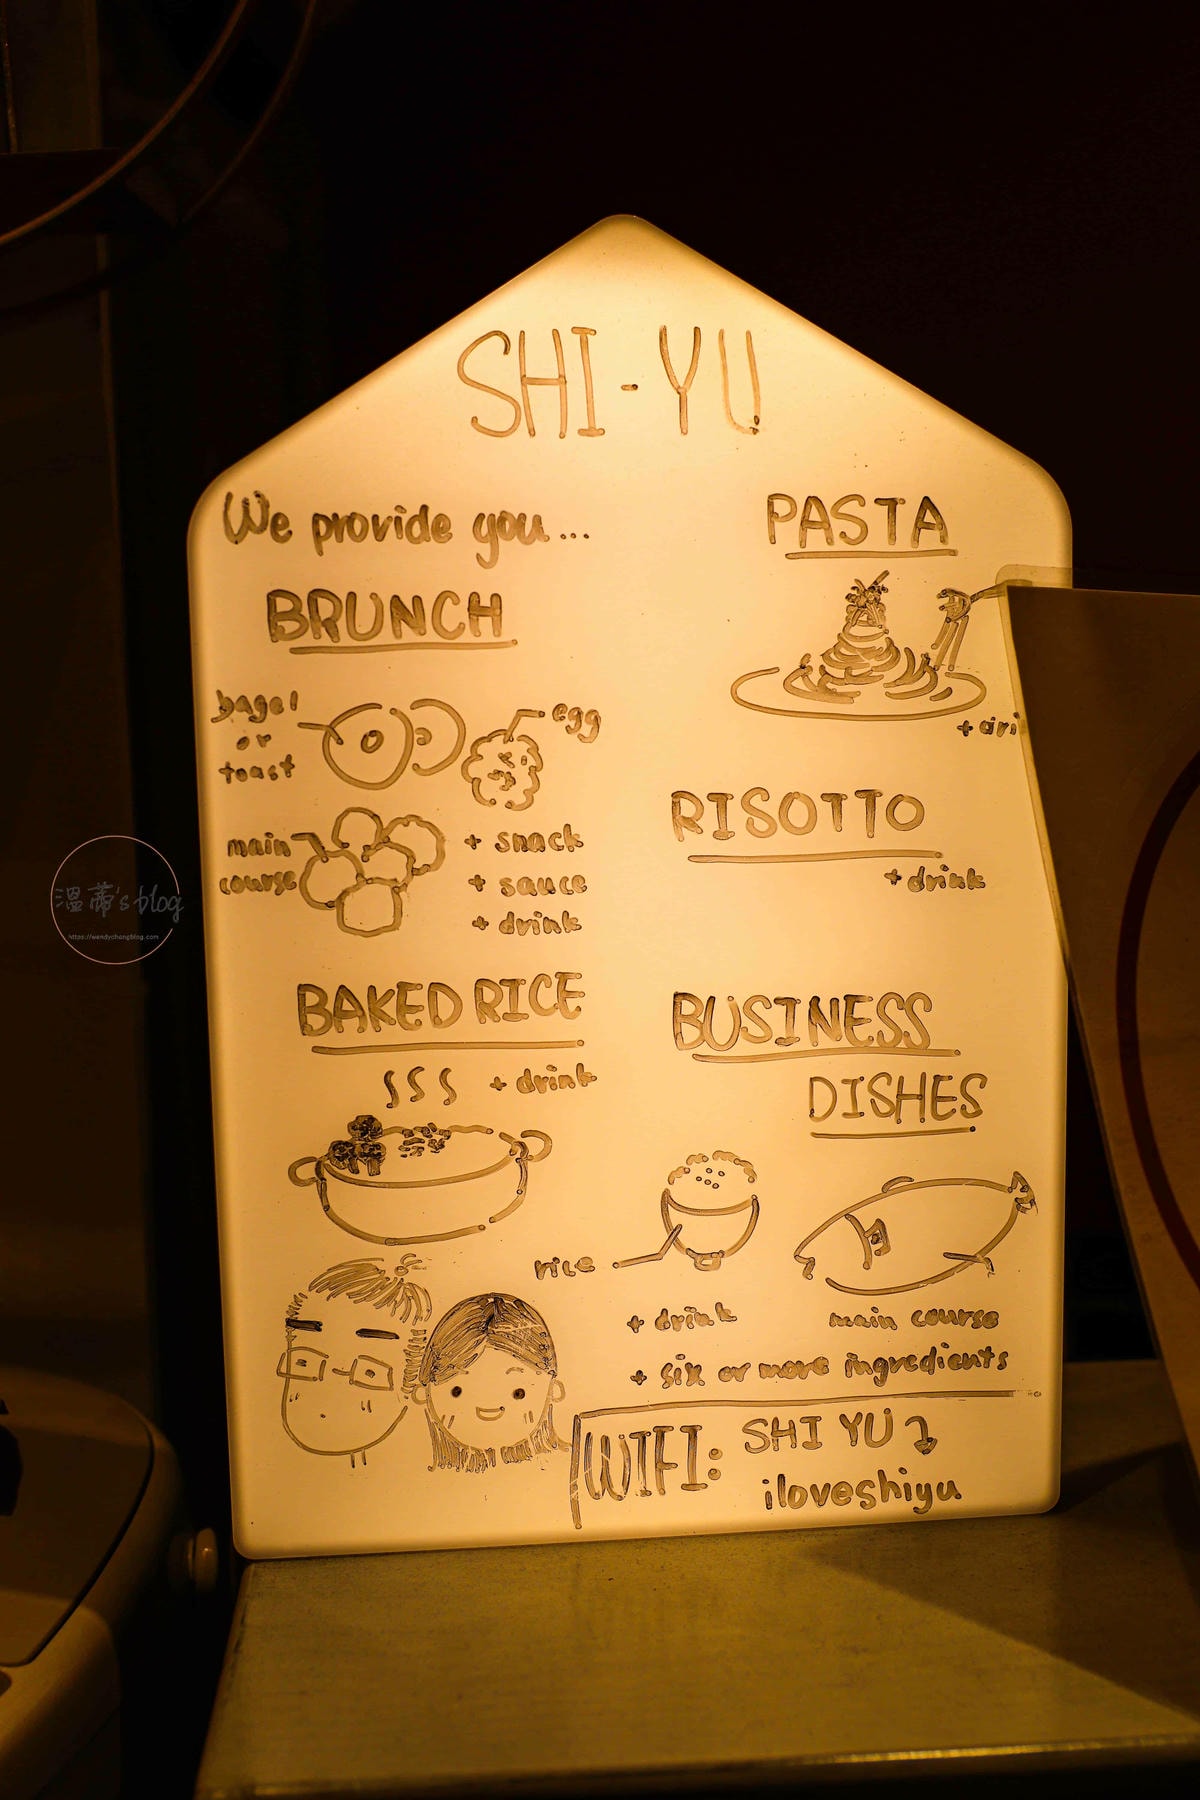 SHI-YU
We provide you...
BRUNCH
bagel
or
toast
egg
main
course
+ snack
+ sauce
+ drink
BAKED RICE
+ drink
PASTA
RISOTTO
+ drink
BUSINESS
DISHES
rice
+ drink
main course
+ six or more ingredients
WIFI: SHI YU
iloveshiyu
溫蒂's blog
https://wendychangblog.com